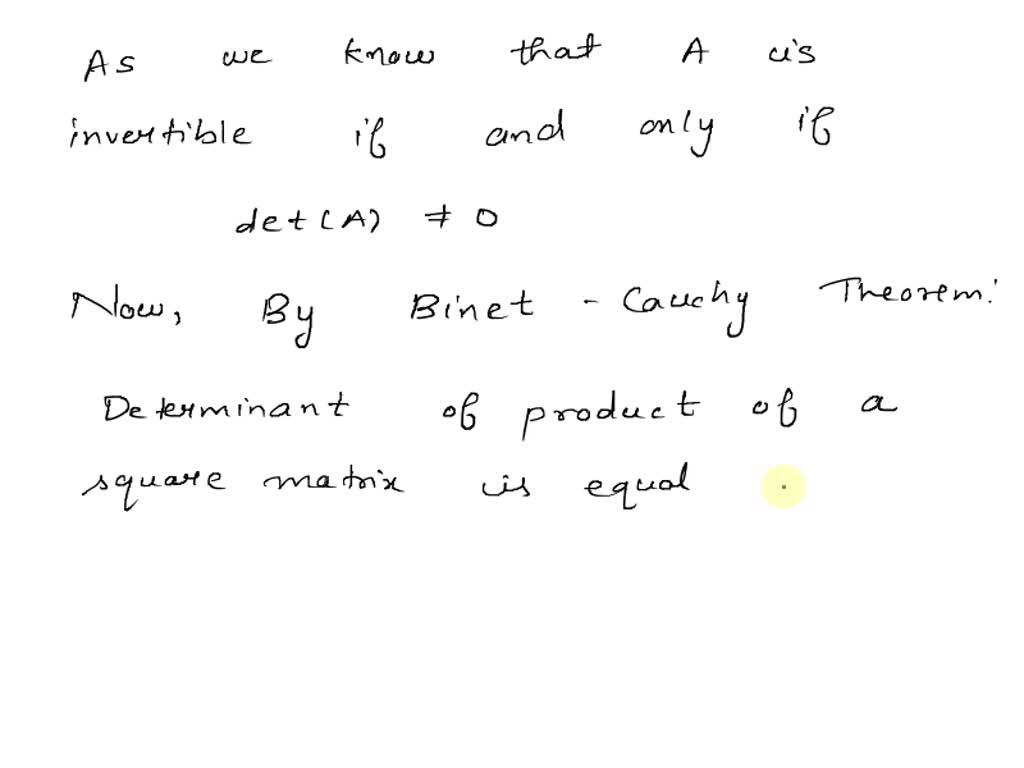 As we know that A is
invertible if and only if
det(A) ≠ 0
Now, By Binet - Cauchy Theorem:
Determinant of product of a
square matrix is equal